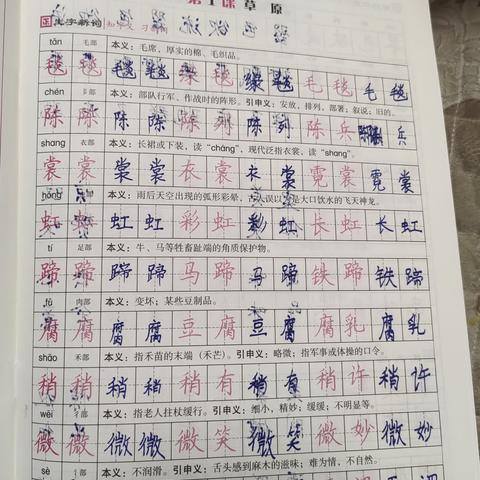 第1课 草 原
国 生字新词
tǎn 毛部 本义：毛席，厚实的棉、毛织品。
毯 毯 毯 毯 绿 毯 绿 毯 毛 毯 毛 毯
chén 阝部 本义：部队行军、作战时的阵形。引申义：安放，排列，部署；叙说；旧的。
陈 陈 陈 陈 陈 列 陈 列 陈 兵 兵
shang 衣部 本义：长裙或下装，读“cháng”，现代泛指衣裳，读“shang”。
裳 裳 裳 裳 衣 裳 衣 裳 霓 裳 霓 裳
hóng 本义：雨后天空出现的弧形彩晕，古人误以为是大口饮水的飞天神龙。
虹 虹 虹 虹 彩 虹 彩 虹 长 虹 长 虹
tí 足部 本义：牛、马等牲畜趾端的角质保护物。
蹄 蹄 蹄 蹄 马 蹄 马 蹄 铁 蹄 铁 蹄
fǔ 肉部 本义：变坏；某些豆制品。
腐 腐 腐 腐 豆 腐 豆 腐 腐 乳 腐 乳
shāo 禾部 本义：指禾苗的末端（禾芒）。引申义：略微；指军事或体操的口令。
稍 稍 稍 稍 稍 有 稍 有 稍 许 稍 许
wēi 彳部 本义：指老人拄杖缓行。引申义：细小，精妙；缓缓；不明显等。
微 微 微 微 微 笑 微 笑 微 妙 微 妙
sè 氵部 本义：不润滑。引申义：舌头感到麻木的滋味；难为情，不自然。